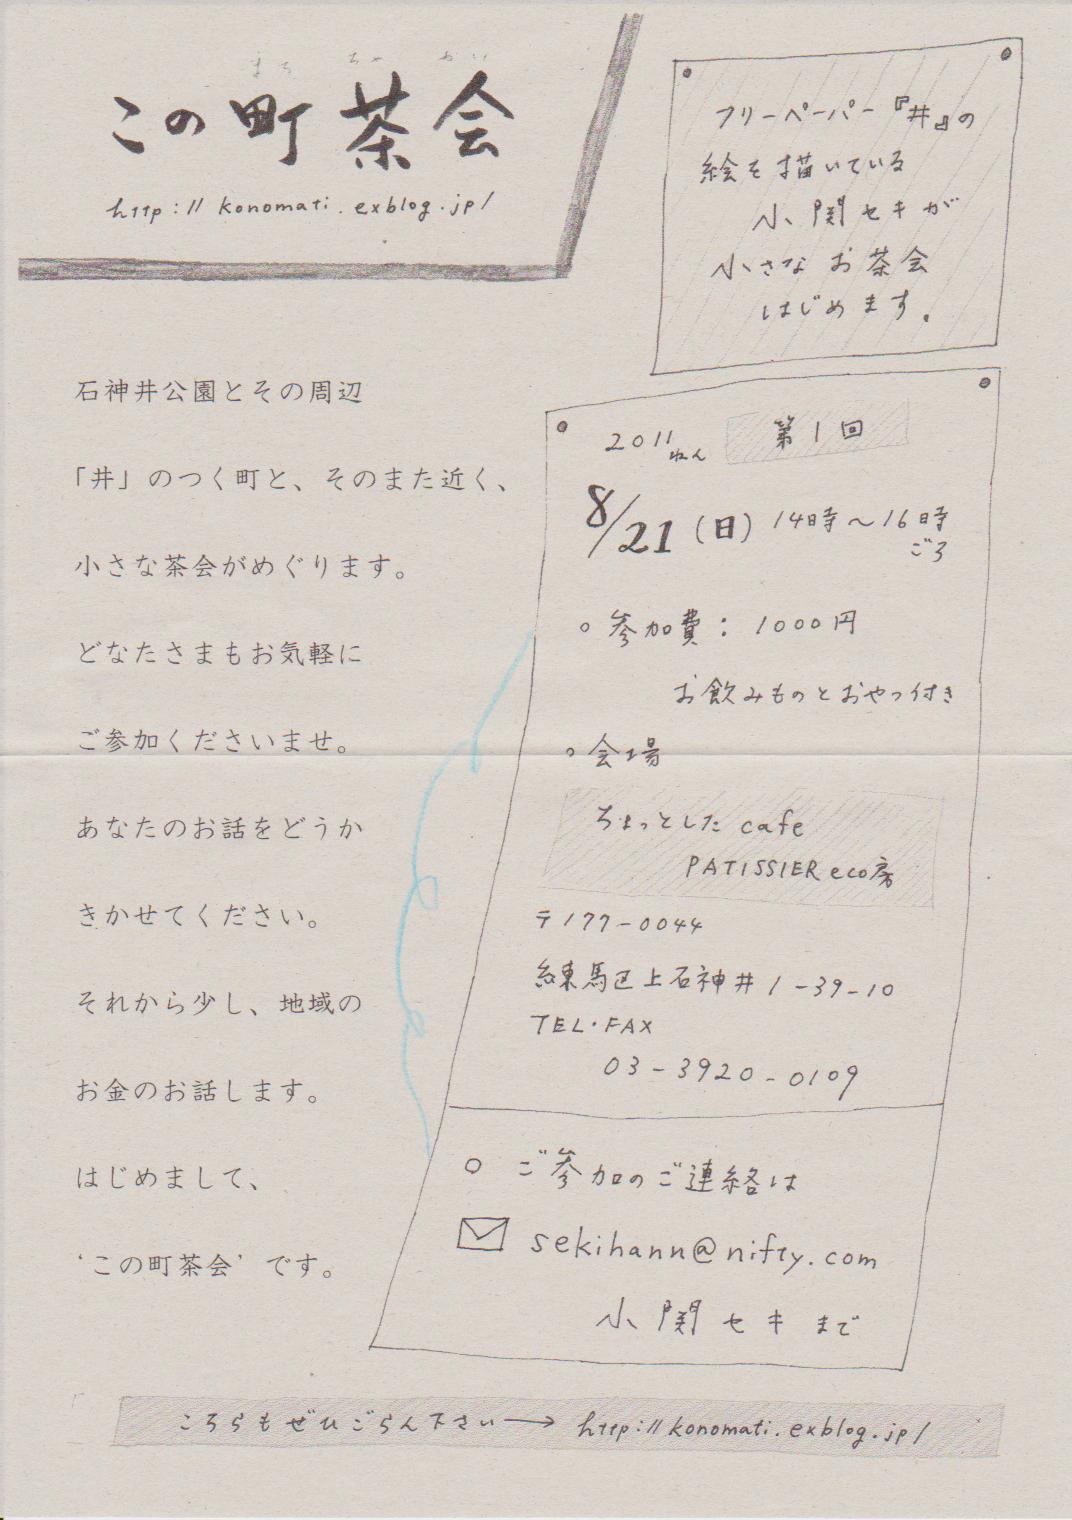 まち ちゃ かい
この町茶会
http://konomati.exblog.jp/
フリーペーパー『井』の
絵を描いている
小関セキが
小さなお茶会
はじめます。
石神井公園とその周辺
「井」のつく町と、そのまた近く、
小さな茶会がめぐります。
どなたさまもお気軽に
ご参加くださいませ。
あなたのお話をどうか
きかせてください。
それから少し、地域の
お金のお話します。
はじめまして、
‘この町茶会’です。
2011ねん 第1回
8/21(日)14時〜16時
ごろ
○参加費:1000円
お飲みものとおやつ付き
○会場
ちょっとしたcafe
PATISSIER eco房
〒177-0044
練馬区上石神井1-39-10
TEL・FAX
03-3920-0109
○ご参加のご連絡は
sekihann@nifty.com
小関セキまで
こちらもぜひごらん下さい→http://konomati.exblog.jp/